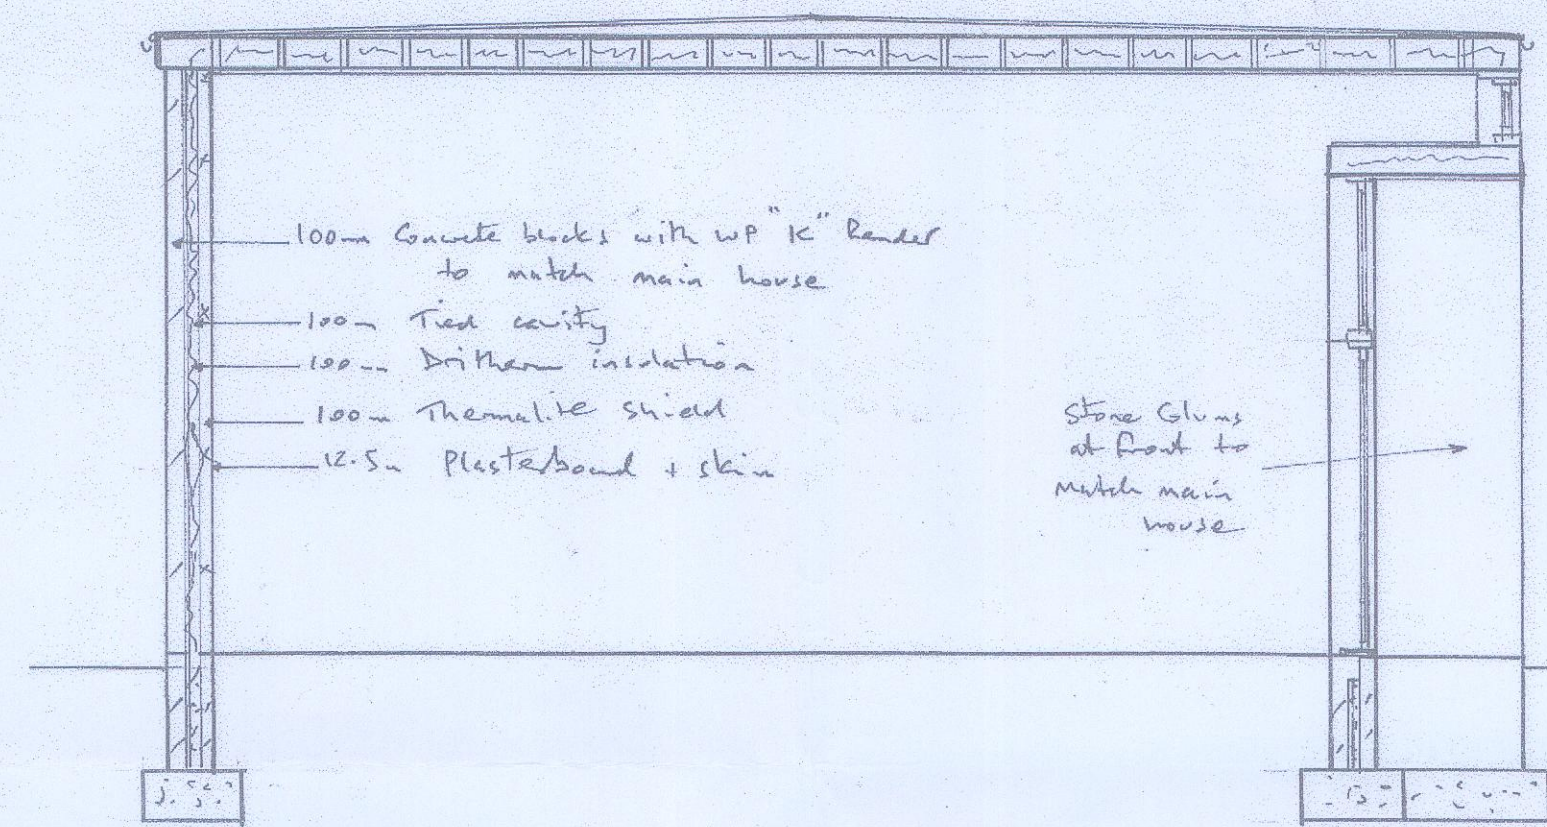 100mm Concrete blocks with WP "K" Render
to match main house
100mm Tied cavity
100mm Dritherm insulation
100mm Thermalite shield
12.5m Plasterboard + skim
Stone
at front to
match main
house